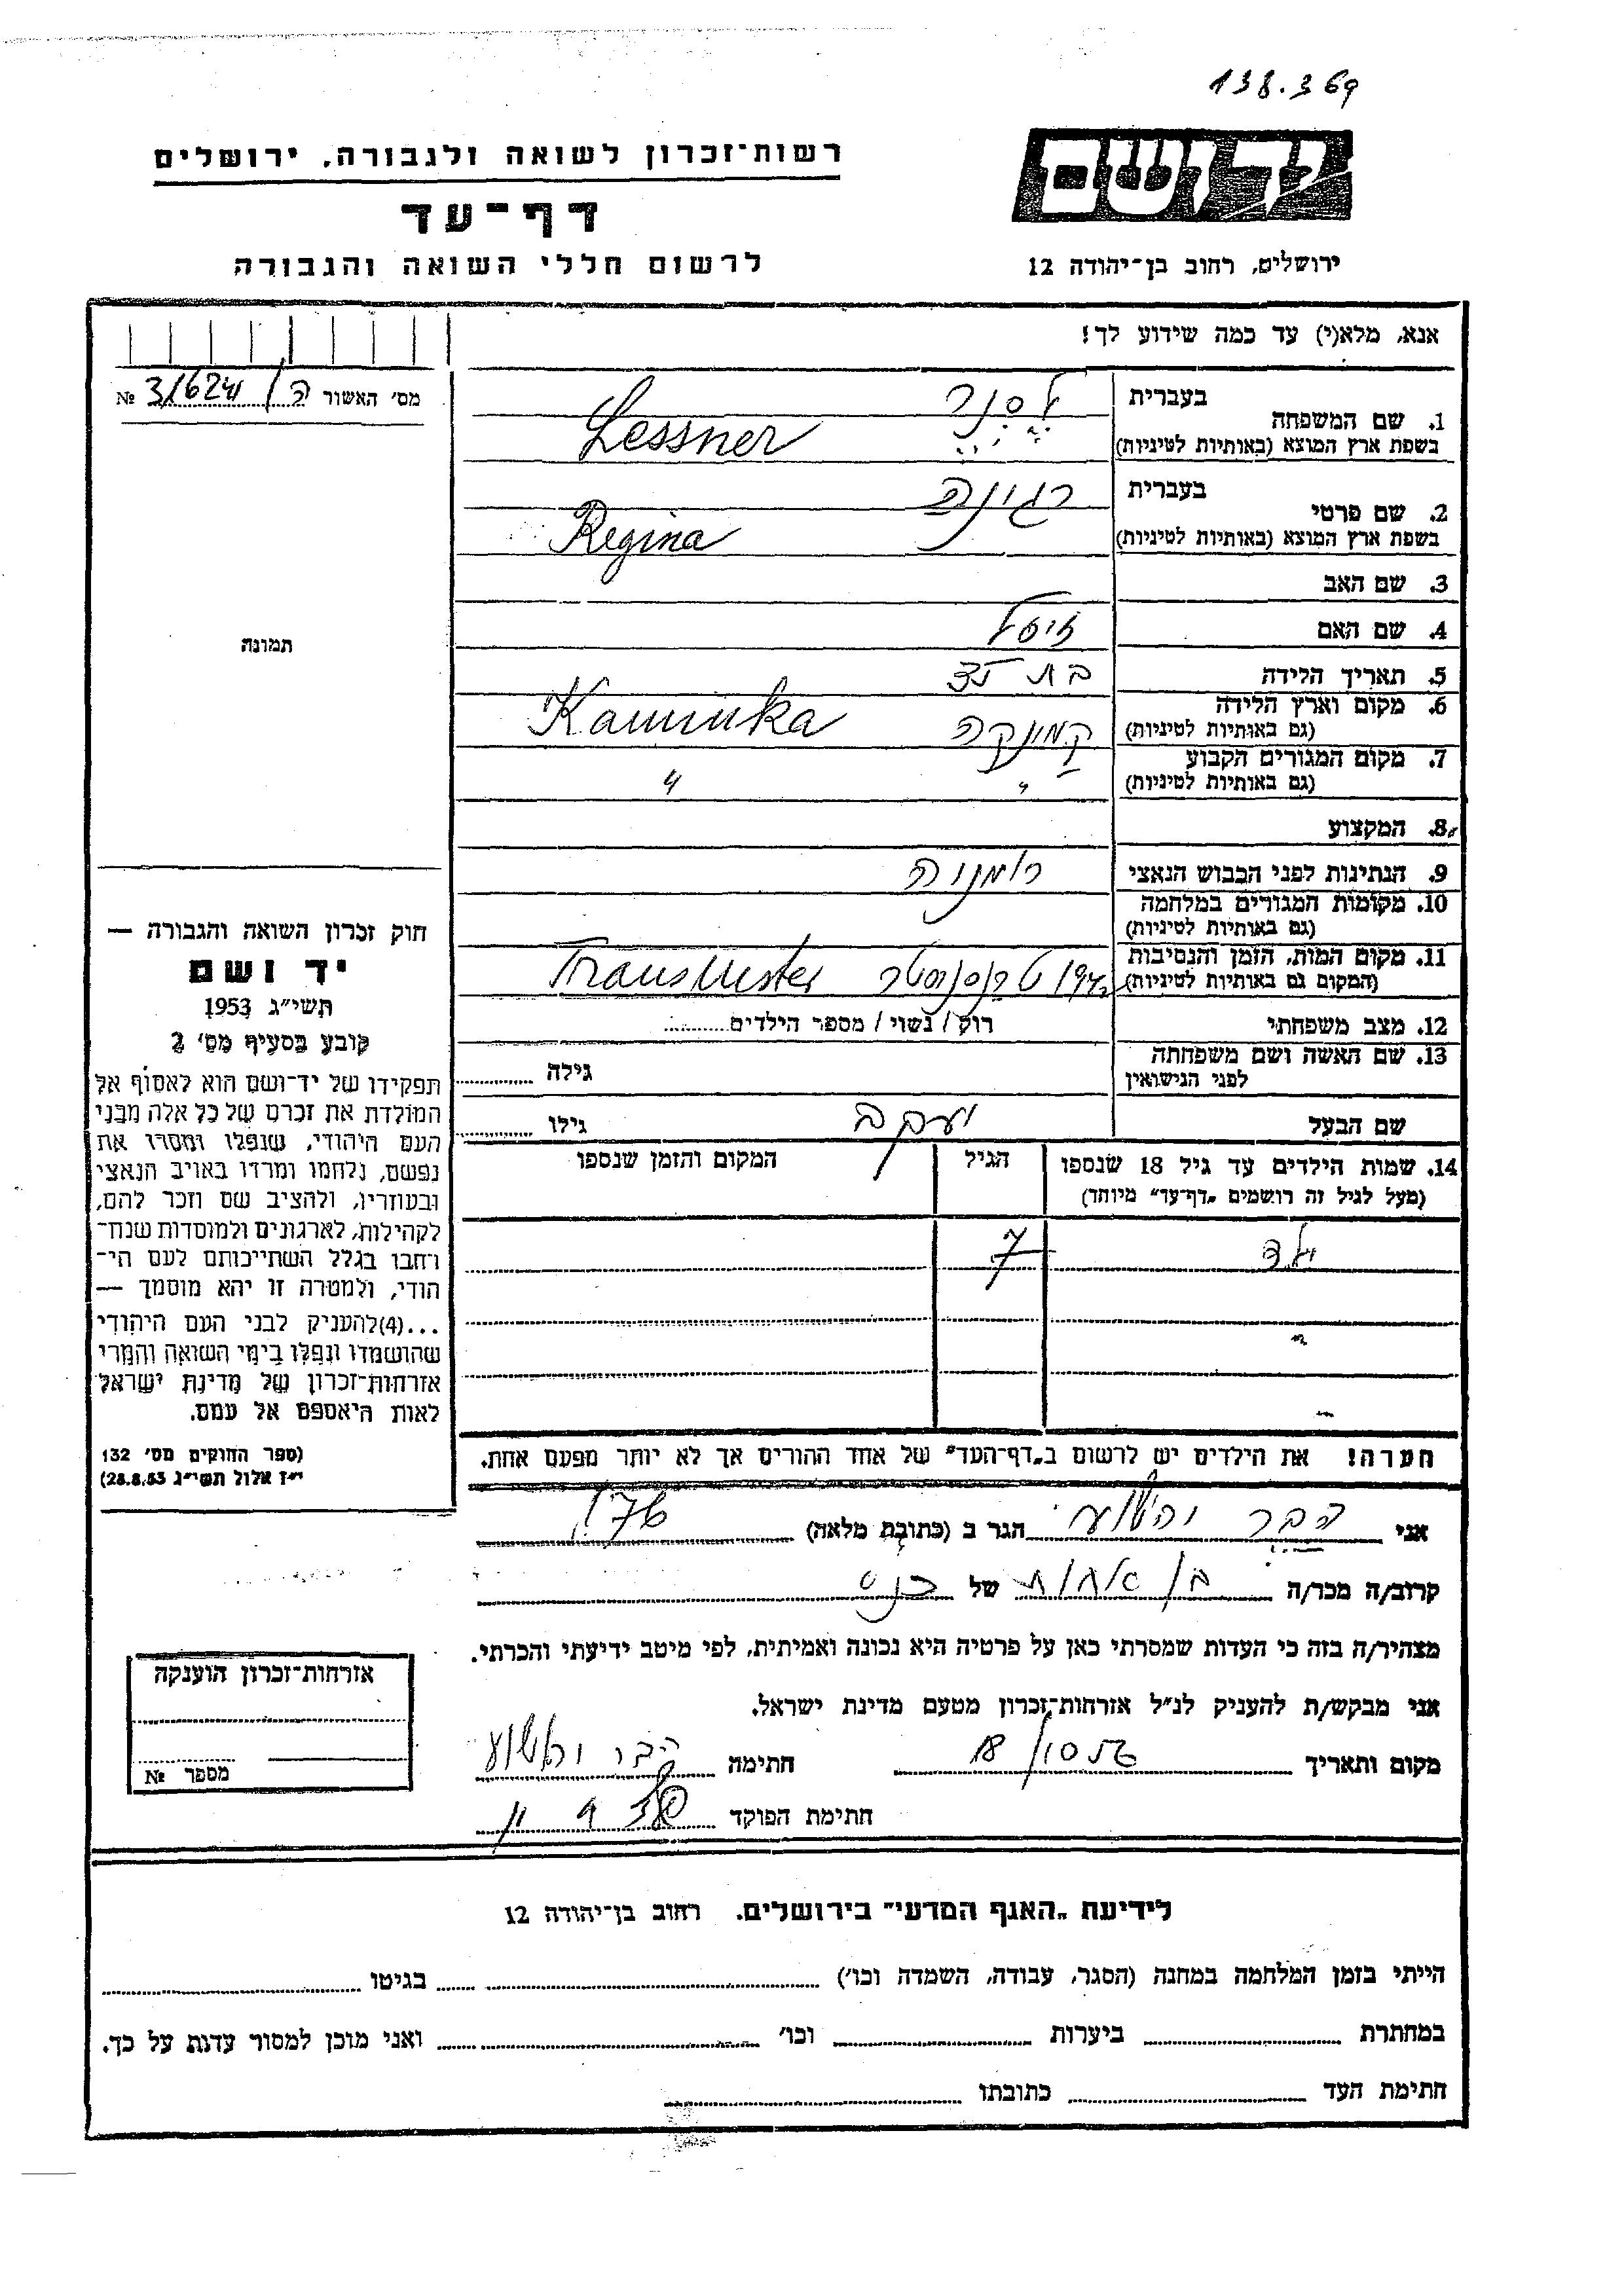 138.369
יד ושם
רשות־זכרון לשואה ולגבורה, ירושלים
דף־עד
לרשום חללי השואה והגבורה
ירושלים, רחוב בן־יהודה 12
אנא, מלא(י) עד כמה שידוע לך!
מס׳ האשור
№
1. שם המשפחה
בעברית לסנר
בשפת ארץ המוצא (באותיות לטיניות) Lessner
2. שם פרטי
בעברית רגינה
בשפת ארץ המוצא (באותיות לטיניות) Regina
3. שם האב
4. שם האם זיסל
5. תאריך הלידה בת
6. מקום וארץ הלידה
(גם באותיות לטיניות) קמינקה Kaminka
7. מקום המגורים הקבוע
(גם באותיות לטיניות) " "
8. המקצוע
9. הנתינות לפני הכבוש הנאצי רומניה
10. מקומות המגורים במלחמה
(גם באותיות לטיניות)
11. מקום המות, הזמן והנסיבות
(המקום גם באותיות לטיניות)
12. מצב משפחתי רוק / נשוי / מספר הילדים
13. שם האשה ושם משפחתה
לפני הנישואין גילה
שם הבעל יעקב גילו
14. שמות הילדים עד גיל 18 שנספו
(מעל לגיל זה רושמים „דף־עד״ מיוחד)
הגיל
המקום והזמן שנספו
ילד 7
הערה! את הילדים יש לרשום ב„דף־העד״ של אחד ההורים אך לא יותר מפעם אחת.
תמונה
חוק זכרון השואה והגבורה —
יד ושם
תשי״ג 1953
קובע בסעיף מס׳ 2
תפקידו של יד־ושם הוא לאסוף אל
המולדת את זכרם של כל אלה מבני
העם היהודי, שנפלו ומסרו את
נפשם, נלחמו ומרדו באויב הנאצי
ובעוזריו, ולהציב שם וזכר להם,
לקהילות, לארגונים ולמוסדות שנח־
רחבו בגלל השתייכותם לעם הי־
הודי, ולמטרה זו יהא מוסמך —
...(4)להעניק לבני העם היהודי
שהושמדו ונפלו בימי השואה והמרי
אזרחות־זכרון של מדינת ישראל
לאות היאספם אל עמם.
(ספר החוקים מס׳ 132
י״ז אלול תשי״ג 28.8.53)
אני הגר ב (כתובת מלאה)
קרוב/ה מכר/ה בן אחות של
מצהיר/ה בזה כי העדות שמסרתי כאן על פרטיה היא נכונה ואמיתית, לפי מיטב ידיעתי והכרתי.
אני מבקש/ת להעניק לנ״ל אזרחות־זכרון מטעם מדינת ישראל.
מקום ותאריך חתימה
חתימת הפוקד
אזרחות־זכרון הוענקה
מספר №
לידיעת „האגף המדעי״ בירושלים. רחוב בן־יהודה 12
הייתי בזמן המלחמה במחנה (הסגר, עבודה, השמדה וכו׳) בגיטו
במחתרת ביערות וכו׳ ואני מוכן למסור עדות על כך.
חתימת העד כתובתו